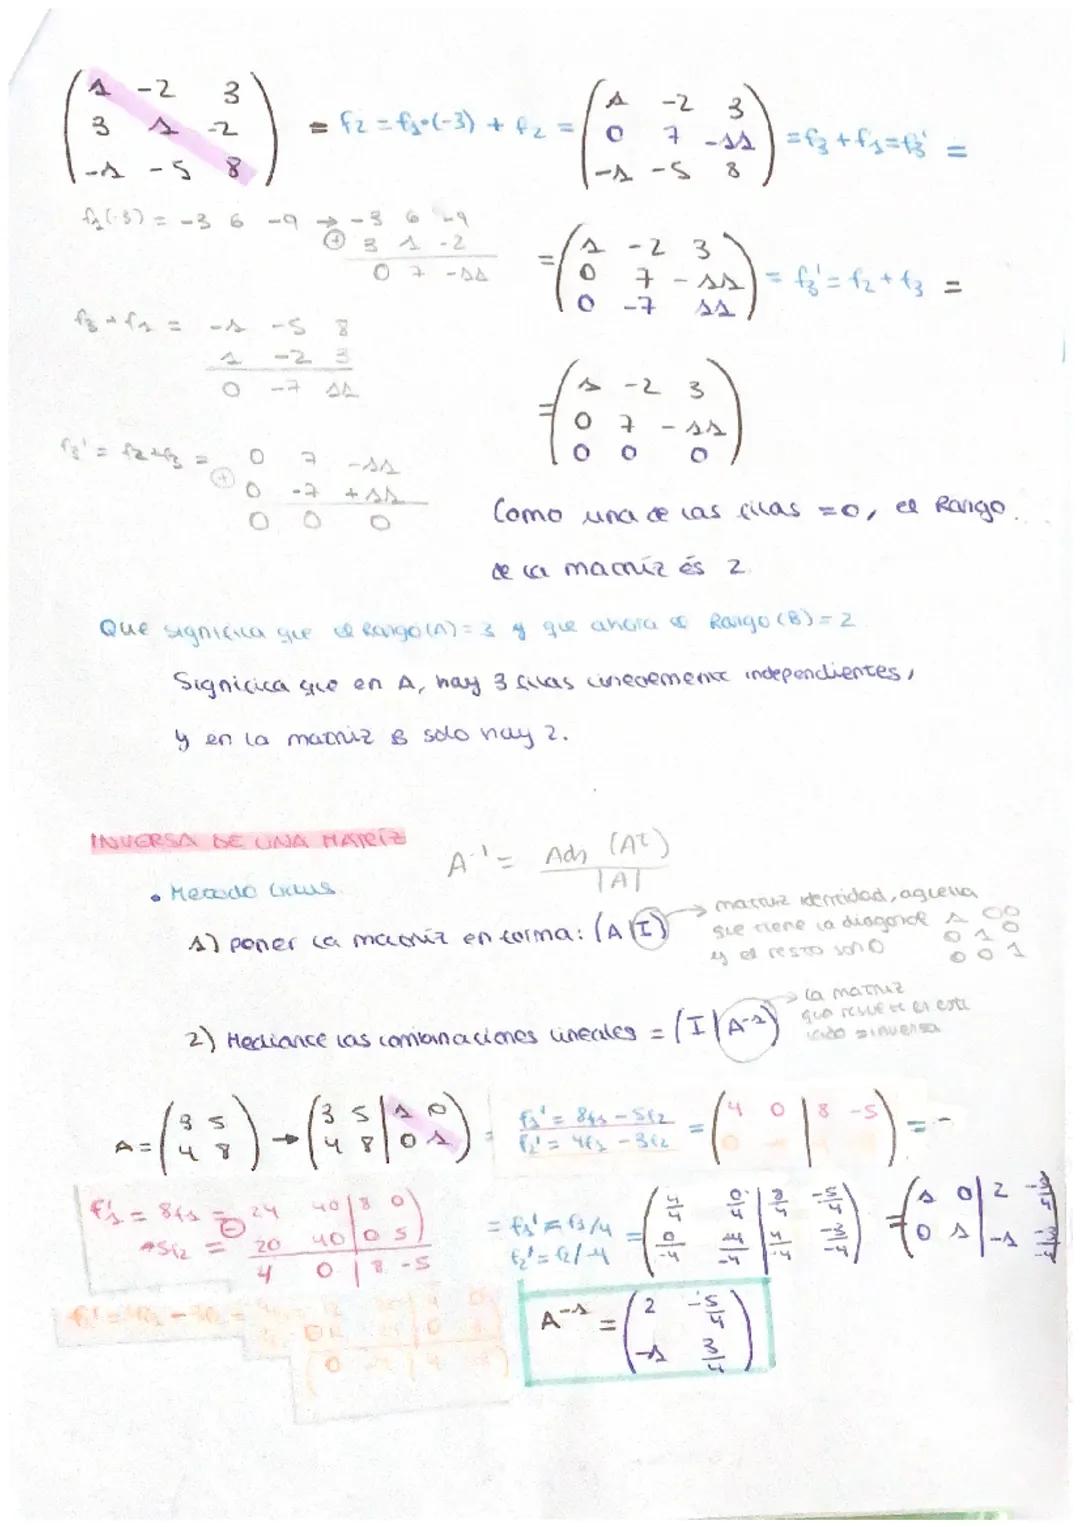 1 -2 3
3 1 -2 = f2 = f1·(-3) + f2 =
-1 -5 8
1 -2 3
0 7 -11 = f3 + f1 = f3' =
-1 -5 8
f1(-3) = -3 6 -9 → -3 6 -9
+ 3 1 -2
0 7 -11
1 -2 3
= 0 7 -11 = f3' = f2 + f3 =
0 -7 11
f3 + f1 = -1 -5 8
1 -2 3
0 -7 11
1 -2 3
= 0 7 -11
0 0 0
f3' = f2+f3 = 0 7 -11
+ 0 -7 +11
0 0 0
Como una de las filas =0, el Rango
de la matríz és 2.
Que significa que el Rango(A)=3 y que ahora el Rango(B)=2
Significa que en A, hay 3 filas linealmente independientes,
y en la matriz B solo hay 2.
INVERSA DE UNA MATRÍZ
A⁻¹ = Adj (Aᵗ) / |A|
• Metodo Gauss.
1) poner la matriz en forma: (A|I) → matriz identidad, aquella
que tiene la diagonal 1 0 0
y el resto son 0 0 1 0
0 0 1
2) Mediante las combinaciones lineales = (I|A⁻¹) → la matriz
que resulte en este
lado = inversa
A = (3 5 / 4 8) → (3 5 | 1 0 / 4 8 | 0 1) =
f1' = 8f1 - 5f2
f2' = 4f1 - 3f2
= 4 0 | 8 -5
f1' = 8f1 = 24 40 | 8 0
-5f2 = 20 40 | 0 5
4 0 | 8 -5
= f1' = f1/4
f2' = f2/-4
= (4/4 0/4 | 8/4 -5/4 / 0/-4 -4/-4 | 4/-4 -3/-4) = (1 0 | 2 -5/4 / 0 1 | -1 3/4)
A⁻¹ = (2 -5/4 / -1 3/4)